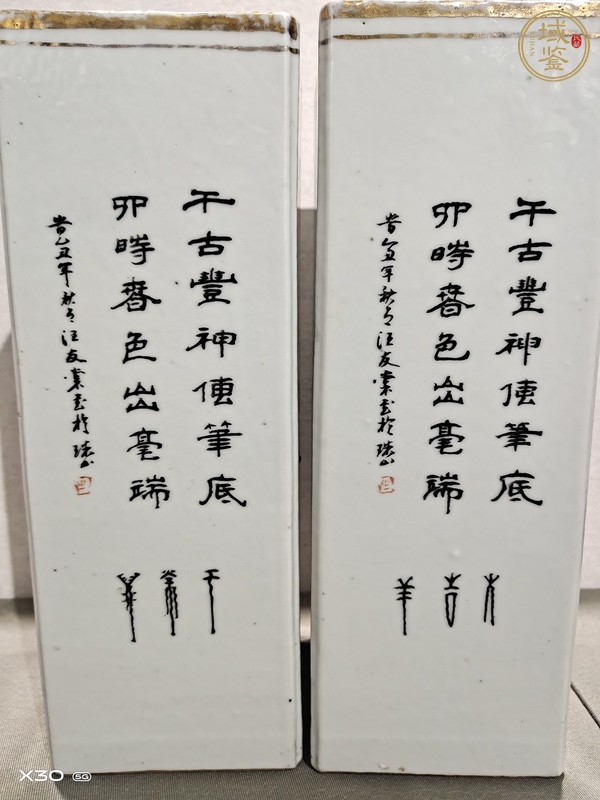 域鉴
千古豐神傳筆底
四時春色出毫端
乙丑年秋月汪友棠於珠山
千古豐神傳筆底
四時春色出毫端
乙丑年秋月汪友棠於珠山
X30 5G